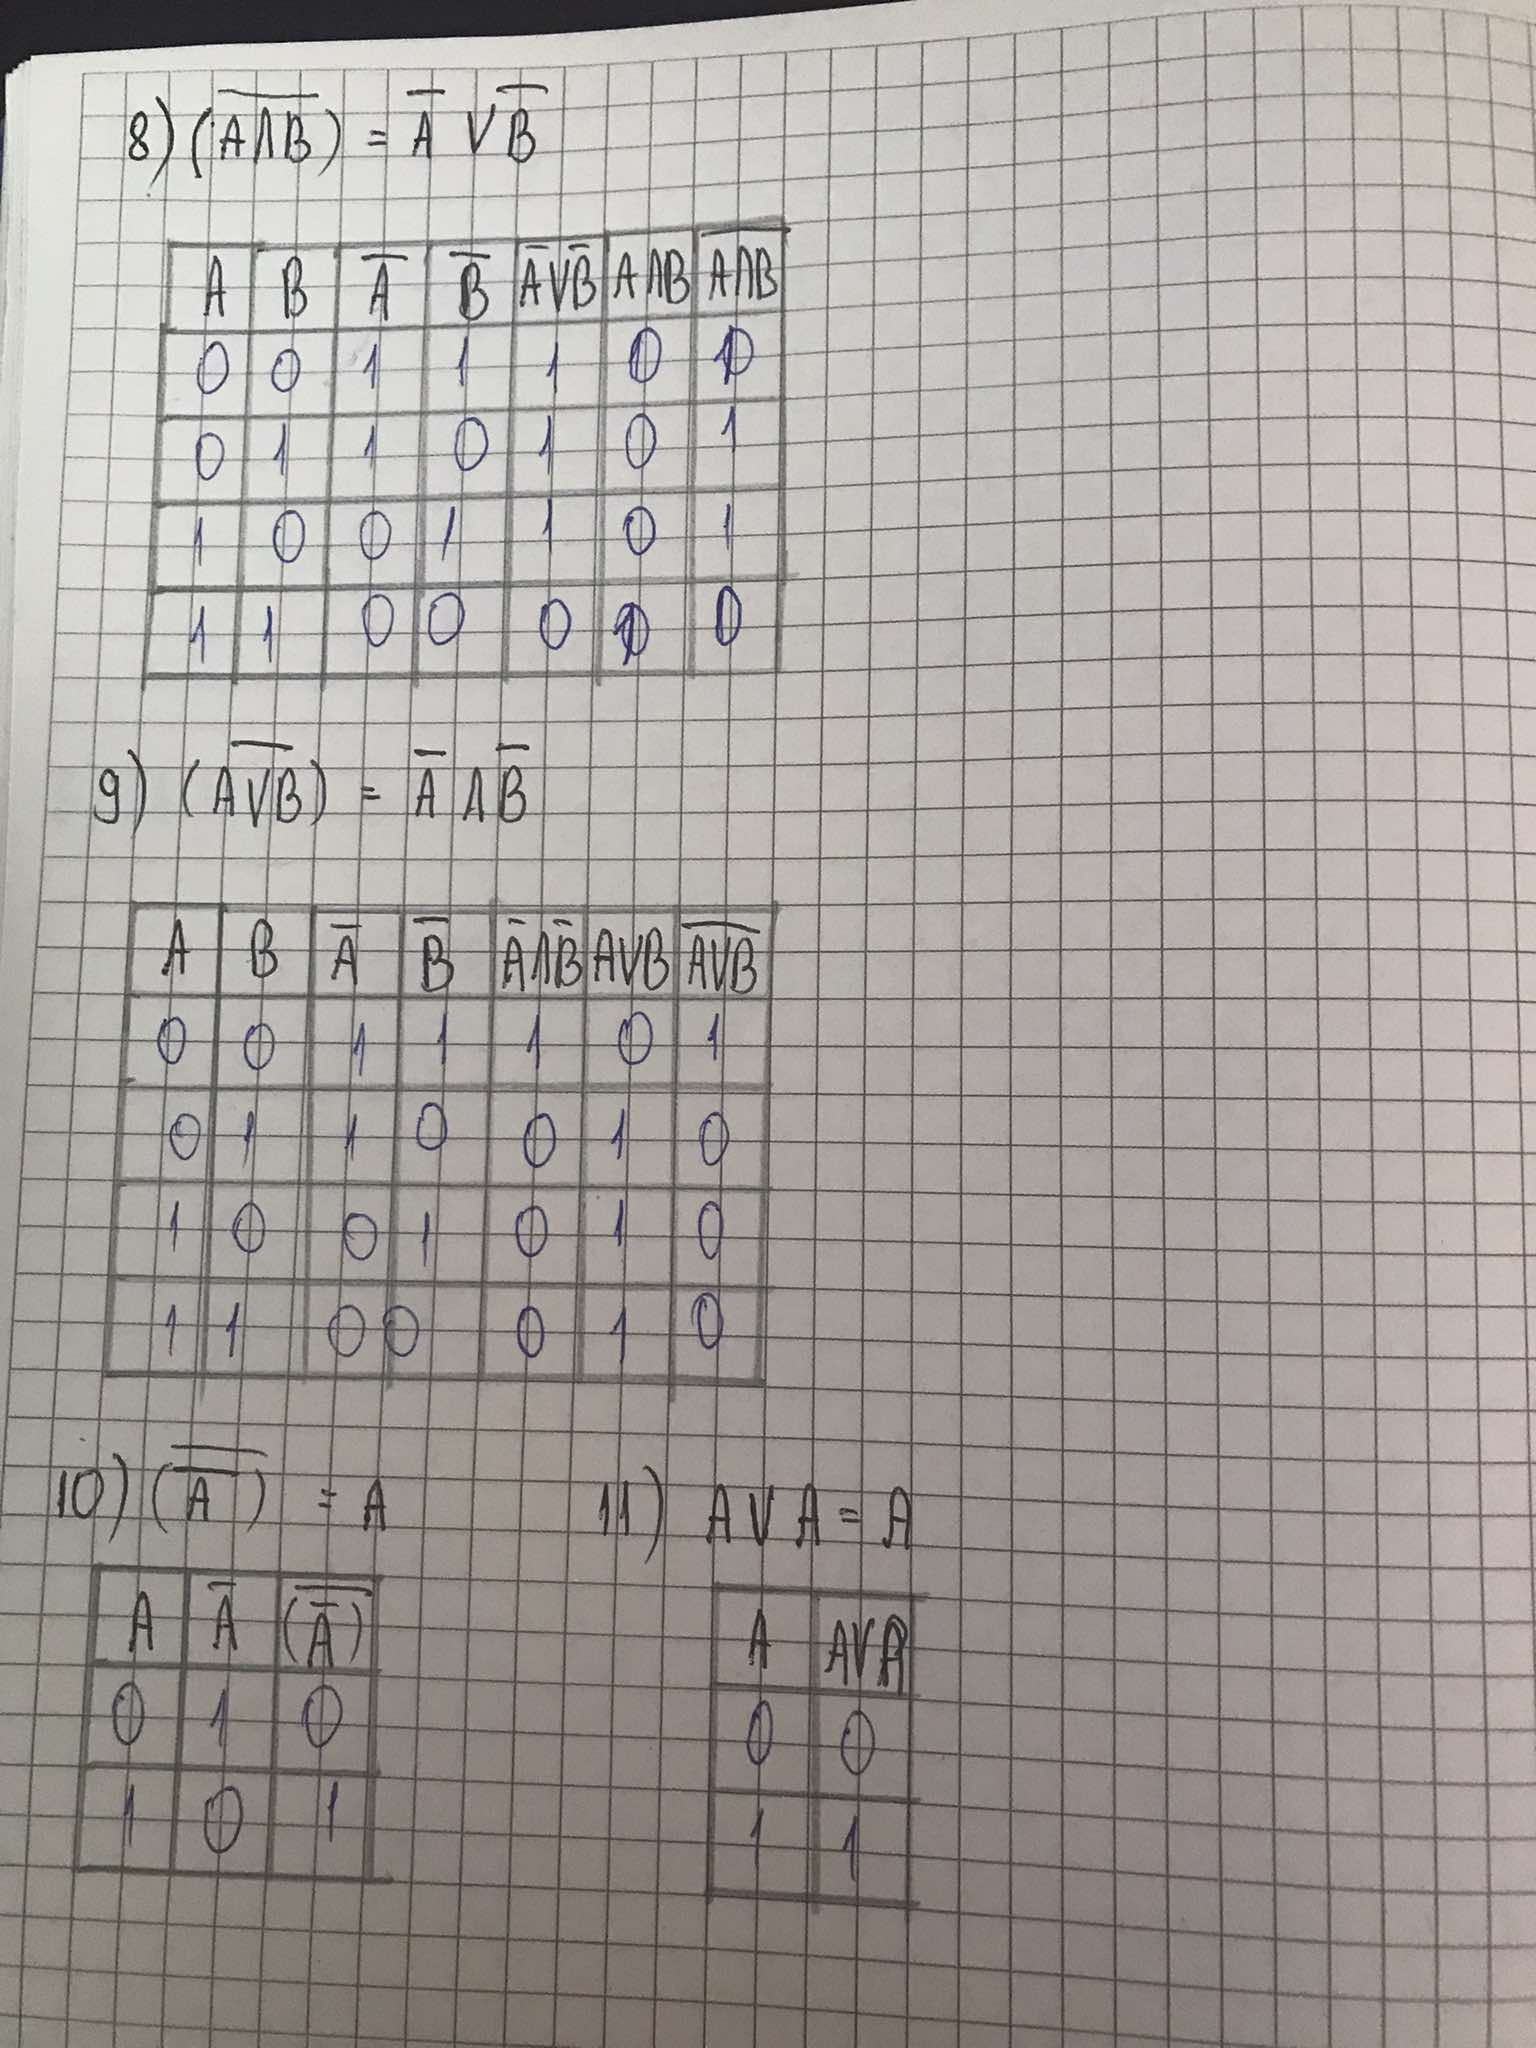 8) (A̅ ̅Λ̅ ̅B̅) = A̅ V B̅
A B A̅ B̅ A̅VB̅ AΛB A̅Λ̅B̅
0 0 1 1 1 0 1
0 1 1 0 1 0 1
1 0 0 1 1 0 1
1 1 0 0 0 1 0
9) (A̅V̅B̅) = A̅ Λ B̅
A B A̅ B̅ A̅ΛB̅ AVB A̅V̅B̅
0 0 1 1 1 0 1
0 1 1 0 0 1 0
1 0 0 1 0 1 0
1 1 0 0 0 1 0
10) (A̿) = A
A A̅ (A̿)
0 1 0
1 0 1
11) A V A = A
A AVA
0 0
1 1